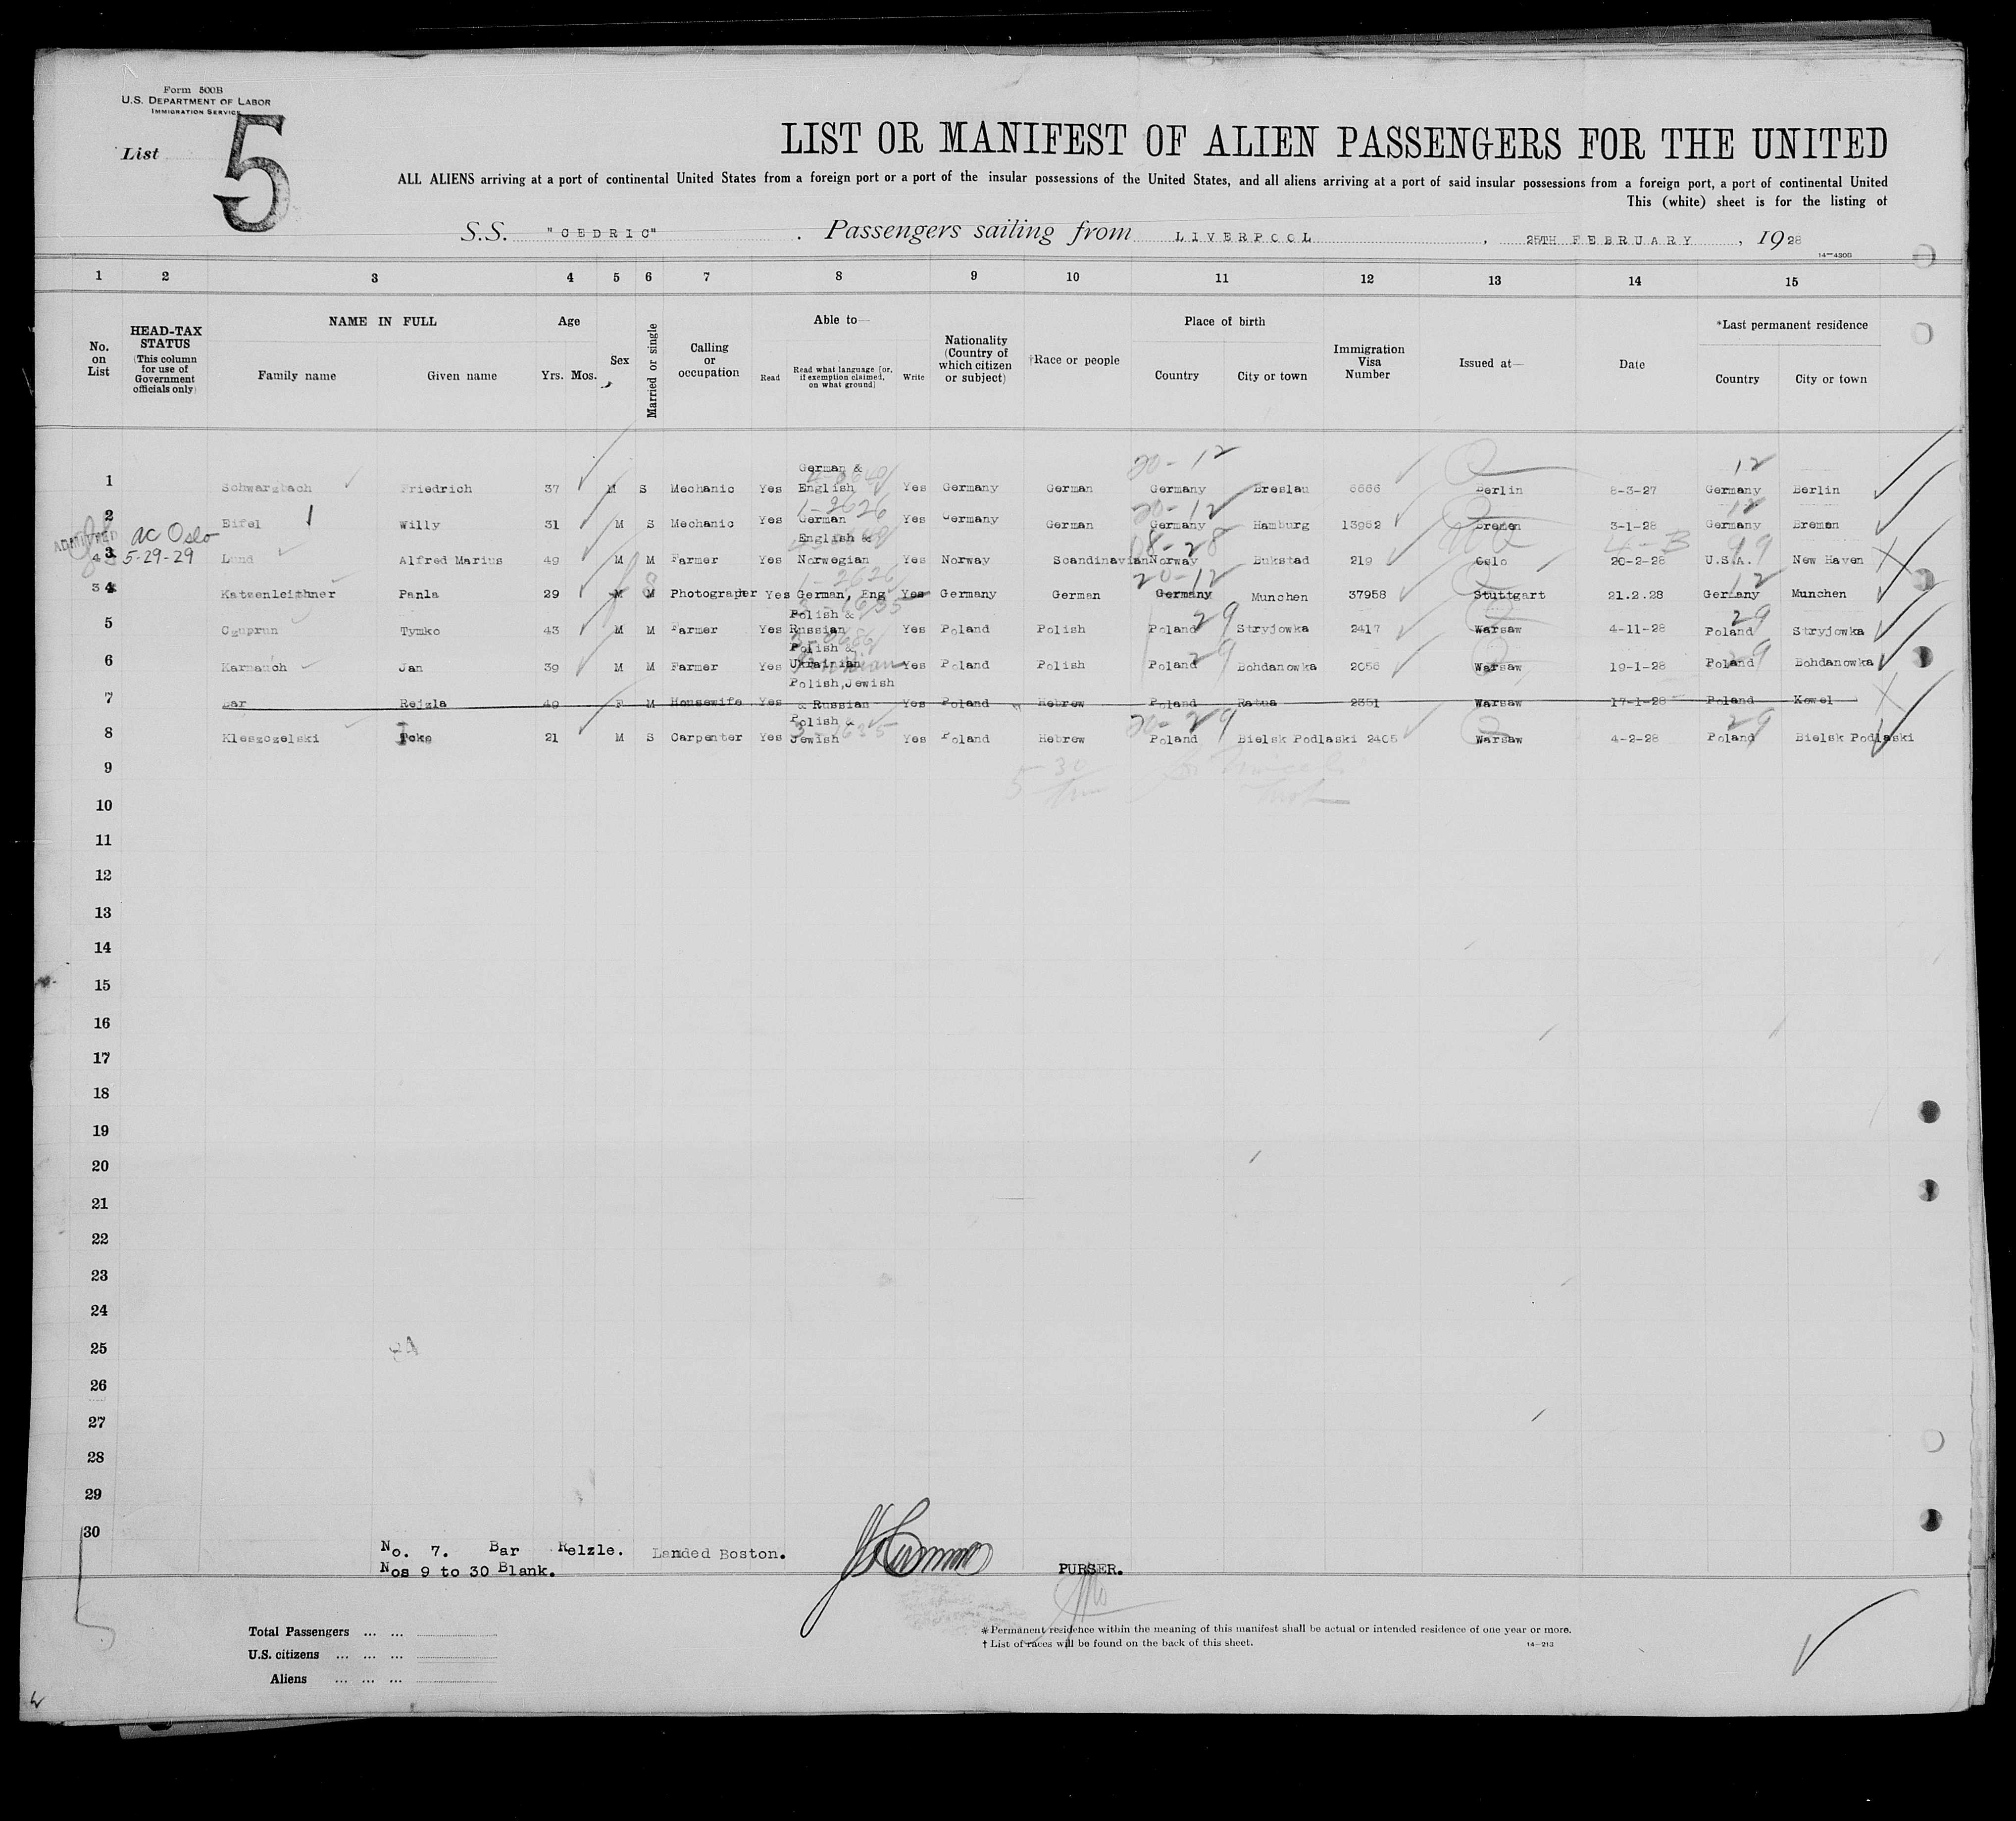 Form 500B
U.S. DEPARTMENT OF LABOR
IMMIGRATION SERVICE
List 5
LIST OR MANIFEST OF ALIEN PASSENGERS FOR THE UNITED
ALL ALIENS arriving at a port of continental United States from a foreign port or a port of the insular possessions of the United States, and all aliens arriving at a port of said insular possessions from a foreign port, a port of continental United
This (white) sheet is for the listing of
S.S. "CEDRIC" . Passengers sailing from LIVERPOOL , 25TH FEBRUARY , 1928
1 2 3 4 5 6 7 8 9 10 11 12 13 14 15
No. on List
HEAD-TAX STATUS (This column for use of Government officials only)
NAME IN FULL
Family name Given name
Age
Yrs. Mos.
Sex
Married or single
Calling or occupation
Able to—
Read Read what language [or, if exemption claimed, on what ground] Write
Nationality (Country of which citizen or subject)
†Race or people
Place of birth
Country City or town
Immigration Visa Number
Issued at—
Date
*Last permanent residence
Country City or town
20-12 12
1 Schwarzbach Friedrich 37 M S Mechanic Yes German & English Yes Germany German Germany Breslau 6666 Berlin 8-3-27 Germany Berlin
1-2626 20-12 12
2 Eifel Willy 31 M S Mechanic Yes German Yes Germany German Germany Hamburg 13962 Bremen 3-1-28 Germany Bremen
ADMITTED ac Oslo
5-29-29
08-28 4-3 99
3 Lund Alfred Marius 49 M M Farmer Yes English & Norwegian Yes Norway Scandinavian Norway Bukstad 219 Oslo 20-2-28 U.S.A. New Haven
1-2626 20-12 12
34 Katzenleithner Panla 29 M M Photographer Yes German, Eng Yes Germany German Germany Munchen 37958 Stuttgart 21.2.28 Germany Munchen
29 29
5 Czuprun Tymko 43 M M Farmer Yes Polish & Russian Yes Poland Polish Poland Stryjowka 2417 Warsaw 4-11-28 Poland Stryjowka
29 29
6 Karnauch Jan 39 M M Farmer Yes Polish & Ukrainian Yes Poland Polish Poland Bohdanowka 2056 Warsaw 19-1-28 Poland Bohdanowka
7 Bar Rejzla 49 F M Housewife Yes Polish, Jewish & Russian Yes Poland Hebrew Poland Ratna 2351 Warsaw 17-1-28 Poland Kowel
20-29 29
8 Kleszczelski Icko 21 M S Carpenter Yes Polish & Jewish Yes Poland Hebrew Poland Bielsk Podlaski 2405 Warsaw 4-2-28 Poland Bielsk Podlaski
9
10
11
12
13
14
15
16
17
18
19
20
21
22
23
24
25
26
27
28
29
30
No. 7. Bar Relzle. Landed Boston.
Nos 9 to 30 Blank.
PURSER.
Total Passengers ... ...
U.S. citizens ... ... ...
Aliens ... ... ...
* Permanent residence within the meaning of this manifest shall be actual or intended residence of one year or more.
† List of races will be found on the back of this sheet.
14-213